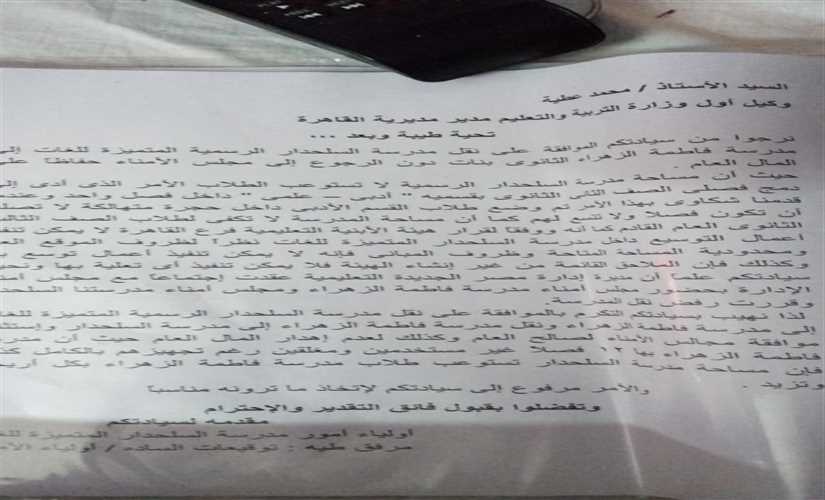 السيد الأستاذ / محمد عطية
وكيل أول وزارة التربية والتعليم مدير مديرية القاهرة
تحية طيبة وبعد ...
نرجوا من سيادتكم الموافقة على نقل مدرسة السلحدار الرسمية المتميزة للغات إلى
مدرسة فاطمة الزهراء الثانوى بنات دون الرجوع إلى مجلس الأمناء حفاظاً على
المال العام .
حيث أن مساحة مدرسة السلحدار الرسمية لا تستوعب الطلاب الأمر الذى أدى إلى
دمج فصلى الصف الثانى الثانوى بقسميه " أدبى - علمى " داخل فصل واحد وعندما
قدمنا شكاوى بهذا الأمر تم وضع طلاب القسم الأدبى داخل حجرة متهالكة لا تصلح
أن تكون فصلا ولا تتسع لهم كما أن مساحة المدرسة لا تكفى لطلاب الصف الثالث
الثانوى العام القادم كما أنه ووفقا لقرار هيئة الأبنية التعليمية فرع القاهرة لا يمكن تنفيذ
أعمال التوسع داخل مدرسة السلحدار المتميزة للغات نظراً لظروف الموقع العام
ومحدودية المساحة المتاحة وظروف المبانى فإنه لا يمكن تنفيذ أعمال توسع بها
وكذلك فإن الملاحق القائمة من غير إنشاء الهيئة فلا يمكن تنفيذ أى تعلية بها
سيادتكم علماً أن مديرة إدارة مصر الجديدة التعليمية عقدت إجتماعاً مع مجلس أمناء
الإدارة بحضور مجلس أمناء مدرسة فاطمة الزهراء ومجلس أمناء مدرستنا السلحدار
وقررت رفض نقل المدرسة
لذا نهيب بسيادتكم التكرم بالموافقة على نقل مدرسة السلحدار الرسمية المتميزة للغات
إلى مدرسة فاطمة الزهراء ونقل مدرسة فاطمة الزهراء إلى مدرسة السلحدار
موافقة مجالس الأمناء لصالح العام وكذلك لعدم إهدار المال العام حيث أن مدرسة
فاطمة الزهراء بها فصلا غير مستخدمين ومغلقين رغم تجهيزهم بالكامل
فإن مساحة مدرسة السلحدار تستوعب طلاب مدرسة فاطمة الزهراء بكل
وتزيد .
والأمر مرفوع إلى سيادتكم لإتخاذ ما ترونه مناسباً
وتفضلوا بقبول فائق التقدير والإحترام
مقدمه لسيادتكم
أولياء أمور مدرسة السلحدار المتميزة
مرفق طيه : توقيعات الساده / أولياء